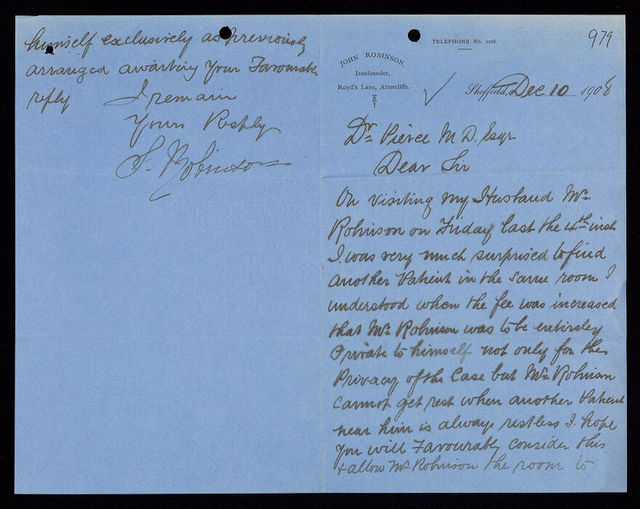 979
TELEPHONE No.
JOHN ROBINSON,
Ironfounder,
Royd's Lane, Attercliffe.
Sheffield, Dec 10 1908
Dr. Pierce M.D. Esqr
Dear Sir
On visiting my Husband Mr.
Robinson on Friday last the 4th inst
I was very much surprised to find
another Patient in the same room I
understood when the fee was increased
that Mr. Robinson was to be entirely
Private to himself not only for the
Privacy of the Case but Mr. Robinson
cannot get rest when another Patient
near him is always restless I hope
you will Favourably consider this
& allow Mr. Robinson the room to
himself exclusively as previously
arranged awaiting Your Favourable
reply I remain
Yours Respfly
S. Robinson